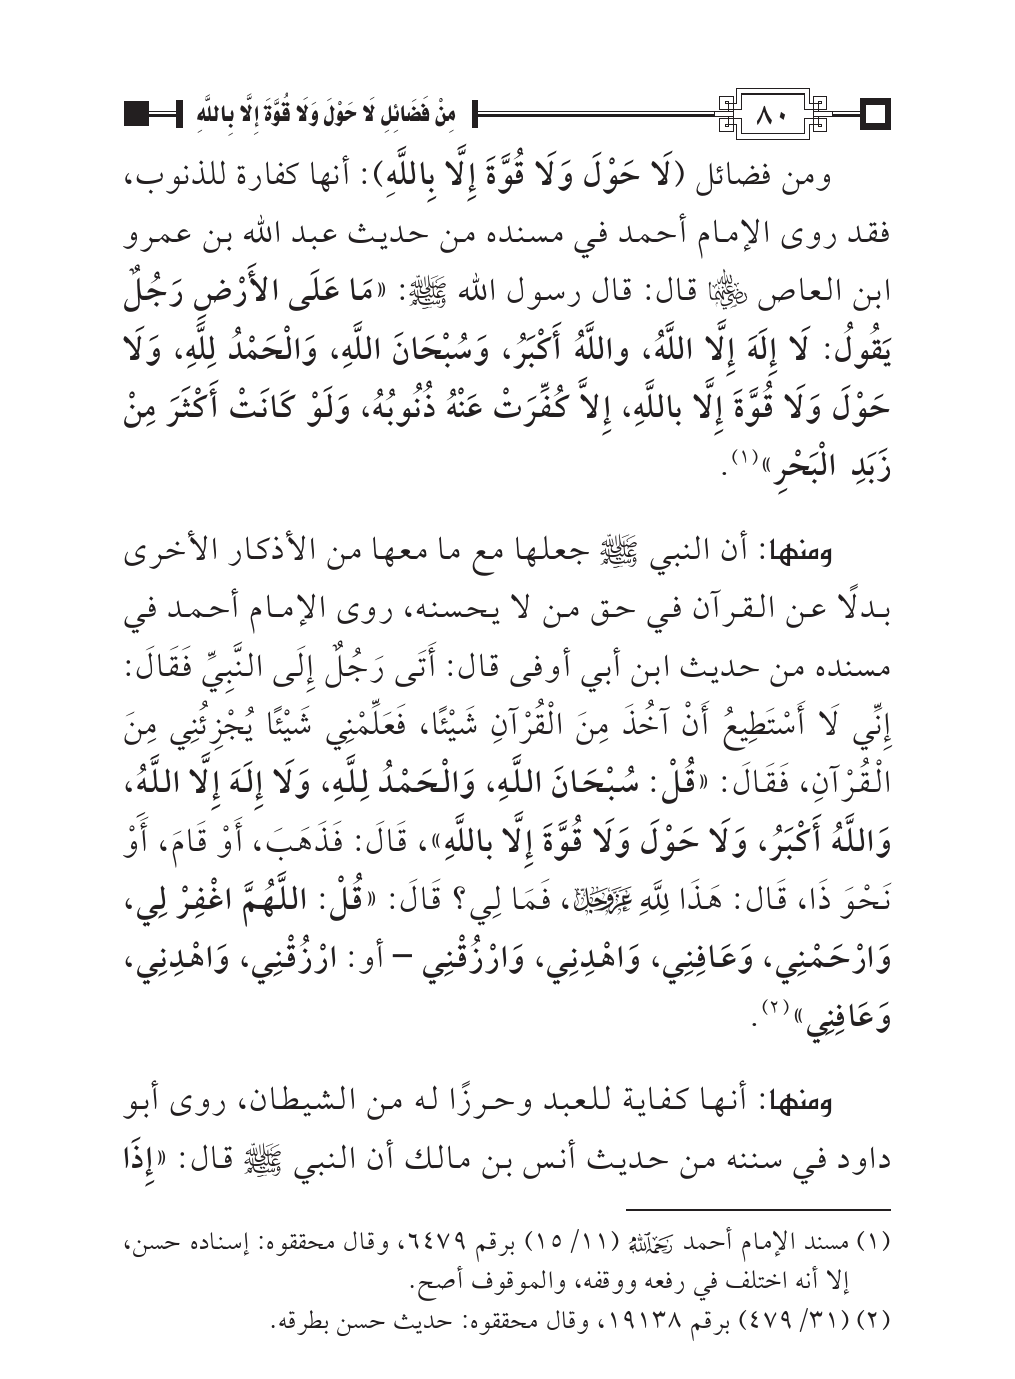 ٨٠
مِنْ فَضَائِلِ لَا حَوْلَ وَلَا قُوَّةَ إِلَّا بِاللَّهِ
ومن فضائل (لَا حَوْلَ وَلَا قُوَّةَ إِلَّا بِاللَّهِ): أنها كفارة للذنوب،
فقد روى الإمام أحمد في مسنده من حديث عبد الله بن عمرو
ابن العاص رضي الله عنهما قال: قال رسول الله ﷺ: «مَا عَلَى الأَرْضِ رَجُلٌ
يَقُولُ: لَا إِلَهَ إِلَّا اللَّهُ، واللَّهُ أَكْبَرُ، وَسُبْحَانَ اللَّهِ، وَالْحَمْدُ لِلَّهِ، وَلَا
حَوْلَ وَلَا قُوَّةَ إِلَّا باللَّهِ، إِلاَّ كُفِّرَتْ عَنْهُ ذُنُوبُهُ، وَلَوْ كَانَتْ أَكْثَرَ مِنْ
زَبَدِ الْبَحْرِ»(١).
ومنها: أن النبي ﷺ جعلها مع ما معها من الأذكار الأخرى
بدلًا عن القرآن في حق من لا يحسنه، روى الإمام أحمد في
مسنده من حديث ابن أبي أوفى قال: أَتَى رَجُلٌ إِلَى النَّبِيِّ فَقَالَ:
إِنِّي لَا أَسْتَطِيعُ أَنْ آخُذَ مِنَ الْقُرْآنِ شَيْئًا، فَعَلِّمْنِي شَيْئًا يُجْزِئُنِي مِنَ
الْقُرْآنِ، فَقَالَ: «قُلْ: سُبْحَانَ اللَّهِ، وَالْحَمْدُ لِلَّهِ، وَلَا إِلَهَ إِلَّا اللَّهُ،
وَاللَّهُ أَكْبَرُ، وَلَا حَوْلَ وَلَا قُوَّةَ إِلَّا باللَّهِ»، قَالَ: فَذَهَبَ، أَوْ قَامَ، أَوْ
نَحْوَ ذَا، قَال: هَذَا لِلَّهِ عَزَّ وَجَلَّ، فَمَا لِي؟ قَالَ: «قُلْ: اللَّهُمَّ اغْفِرْ لِي،
وَارْحَمْنِي، وَعَافِنِي، وَاهْدِنِي، وَارْزُقْنِي – أو: ارْزُقْنِي، وَاهْدِنِي،
وَعَافِنِي»(٢).
ومنها: أنها كفاية للعبد وحرزًا له من الشيطان، روى أبو
داود في سننه من حديث أنس بن مالك أن النبي ﷺ قال: «إِذَا
(١) مسند الإمام أحمد رحمه الله (١١/ ١٥) برقم ٦٤٧٩، وقال محققوه: إسناده حسن،
إلا أنه اختلف في رفعه ووقفه، والموقوف أصح.
(٢) (٣١/ ٤٧٩) برقم ١٩١٣٨، وقال محققوه: حديث حسن بطرقه.